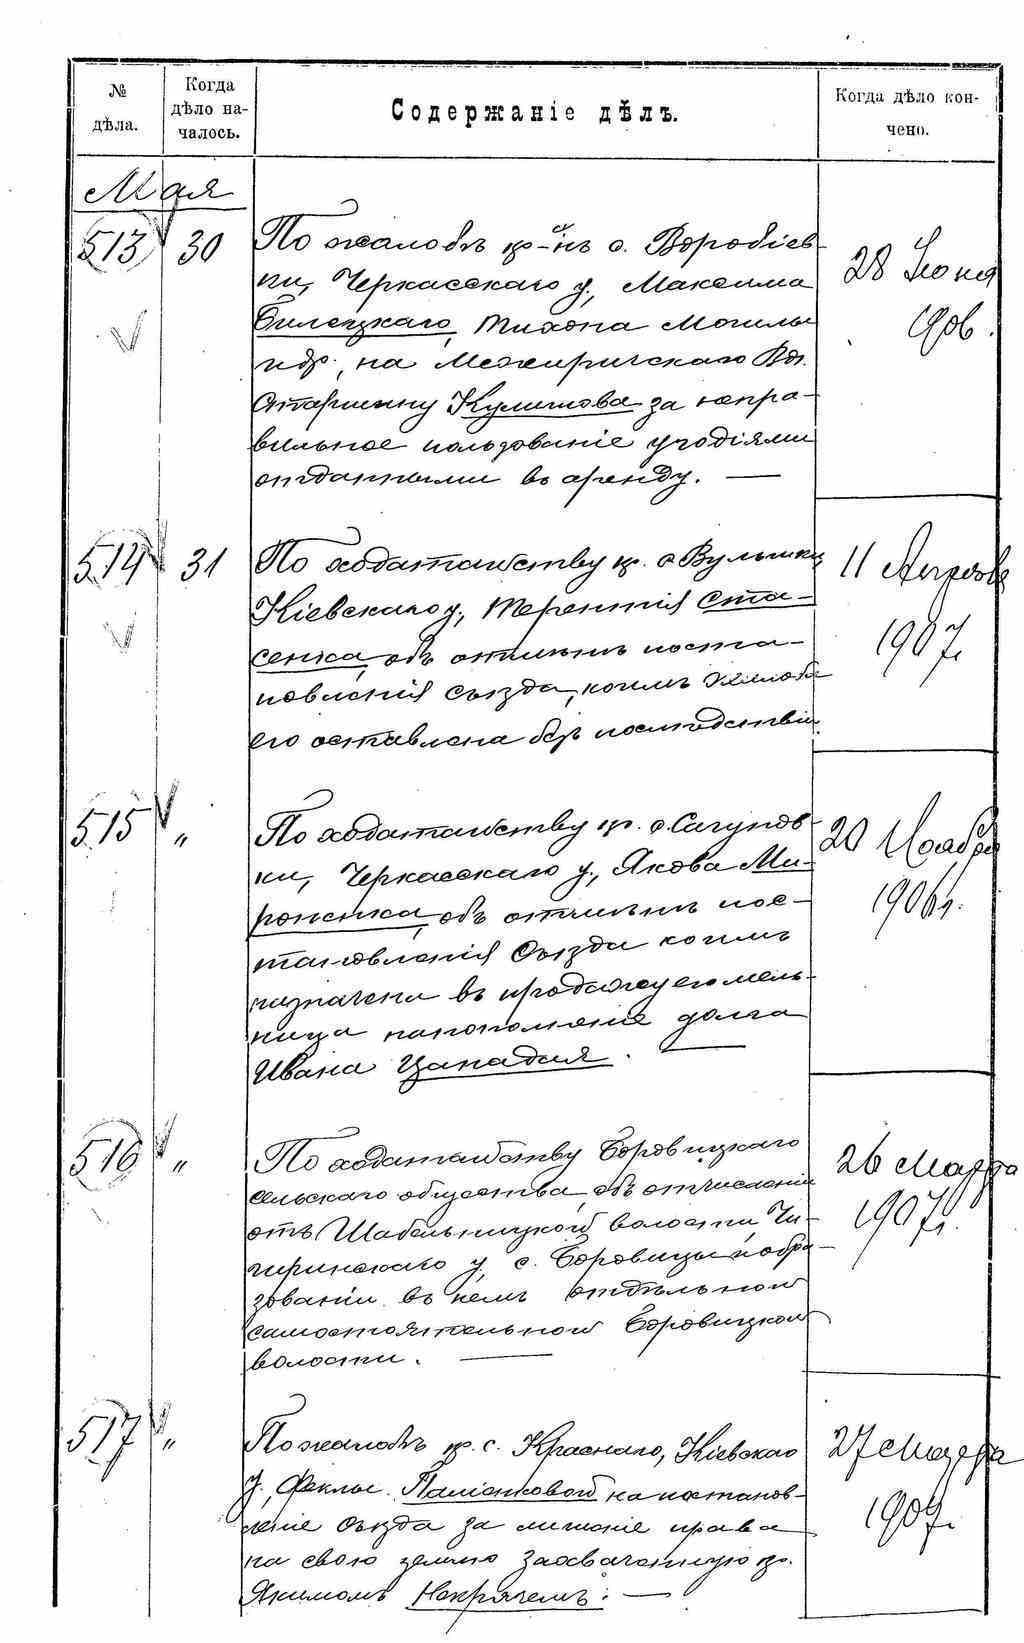 № дѣла.
Когда дѣло на-
чалось.
Содержаніе дѣлъ.
Когда дѣло кон-
чено.
Мая
513 30
По жалобѣ кр-нъ с. Воробіев-
ки, Черкасскаго у., Максима
Билецкаго, Тихона Могилы
и др., на Межиричскаго Вол.
Старшину Кулишова за непра-
вильное пользованіе угодіями
отданными въ аренду. —
28 Іюня
1906.
514 31
По ходатайству кр. с.
Кіевскаго у., Терентія Ста-
сенка, объ отмѣнѣ поста-
новленія съезда, коимъ жалоба
его оставлена безъ послѣдствій
11 Апрѣля
1907г.
515 "
По ходатайству кр. с. Сагунов-
ки, Черкасскаго у., Якова Ми-
роненка, объ отмѣнѣ пос-
тановленія Съезда коимъ
назначена въ продажу его мель-
ница на пополненіе долга
Ивана Цападая. —
20 Ноября
1906г.
516 "
По ходатайству Боровицкаго
сельскаго общества, объ отчисленіи
отъ Шабельницкой волости, Чи-
гиринскаго у. с. Боровицы и обра-
зованіи въ немъ отдѣльной
самостоятельной Боровицкой
волости. —
26 Марта
1907г.
517 "
По жалобѣ кр. с. Краснаго, Кіевскаго
у., Феклы на постанов-
леніе съезда за лишеніе права
на свою землю захваченную кр.
Якимомъ Некрячемъ. —
27 Марта
1907г.